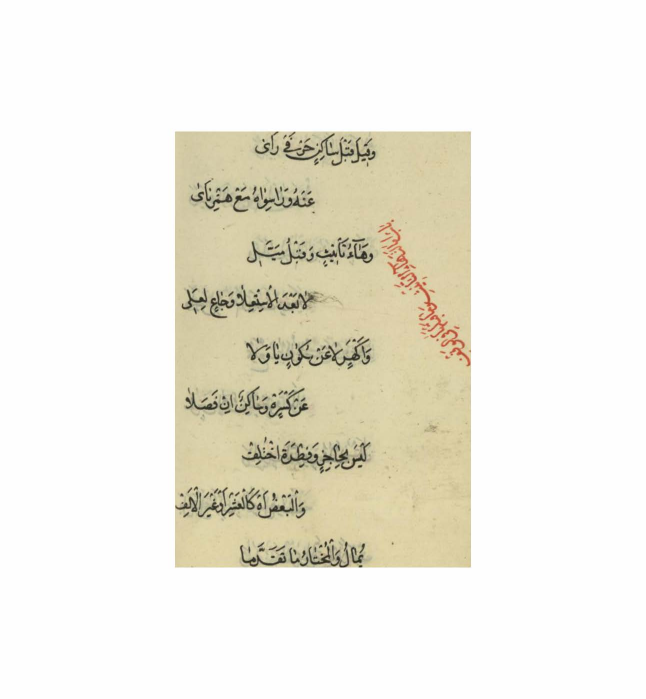 وقيل قبل ساكن حرفي رأى
عنه وراسواه مع همز نأى
وهاء تأنيث وقبل ميل
لا بعد الاستعلا وحاع لعلى
وأكهر لا عن سكون يا ولا
عن كسرة وساكن ان فصلا
ليس بحاجز وفطرت اختلف
والبعض اه كالعشر أو غير الالف
يمال والمختار ما تقدما